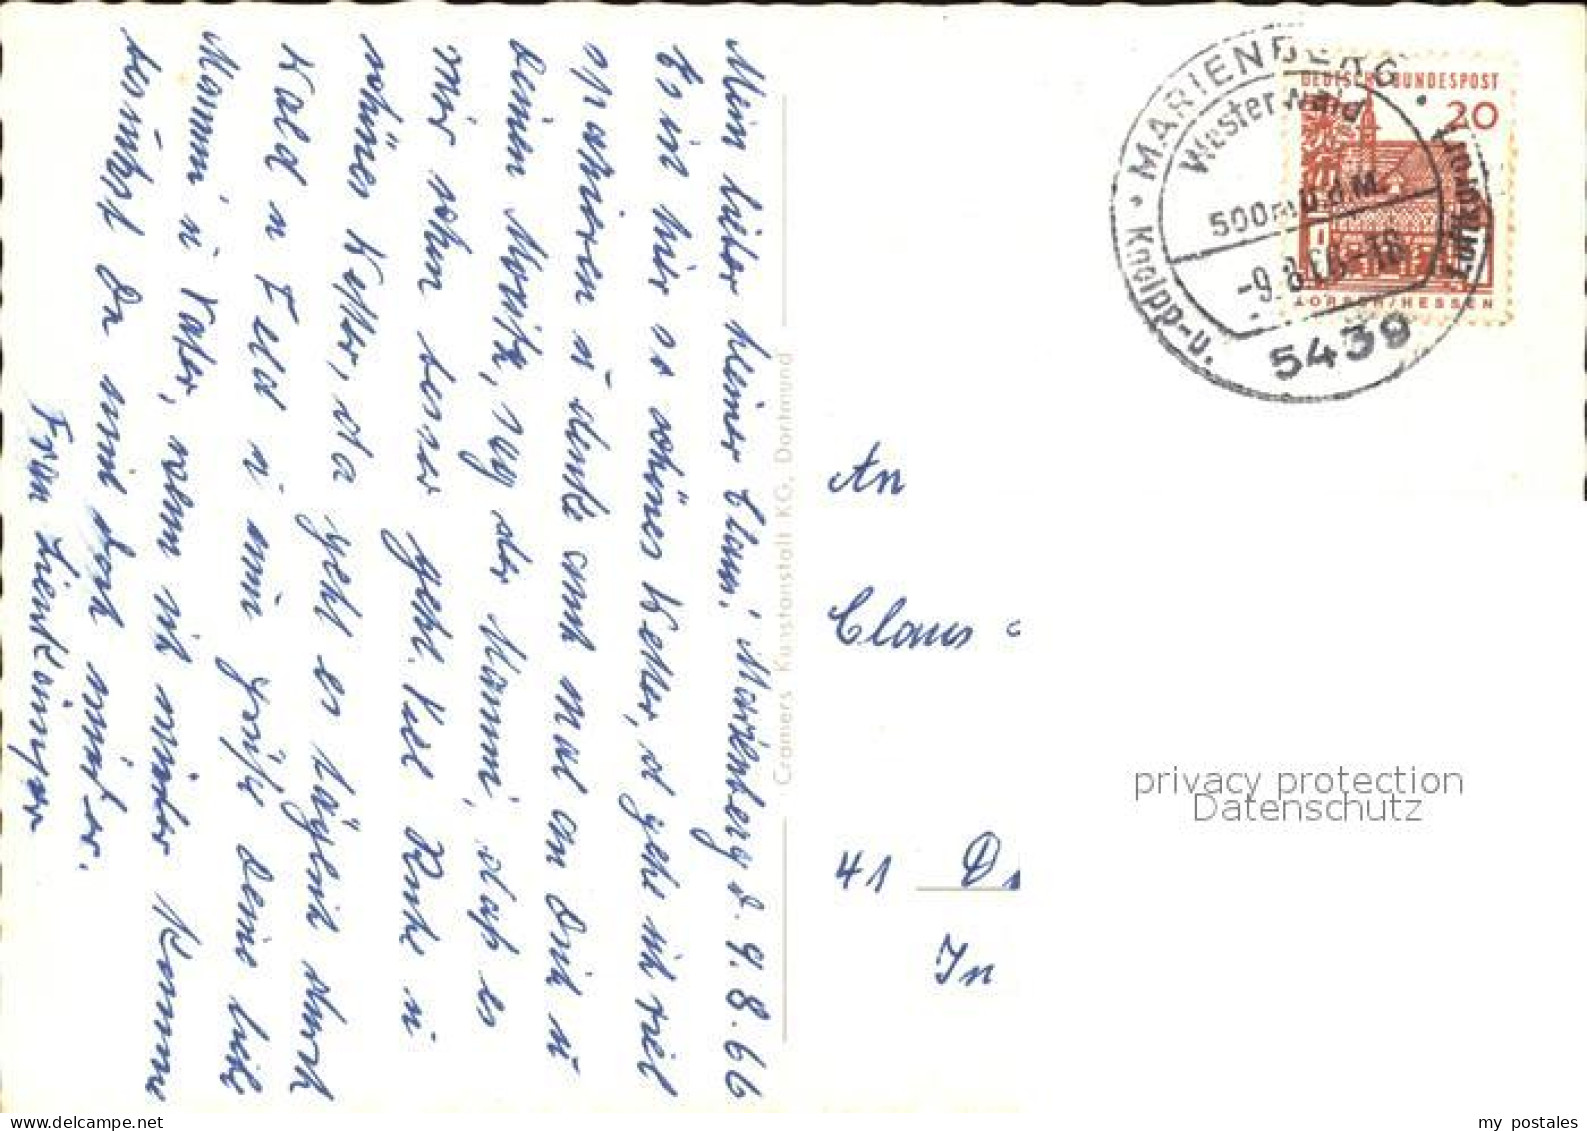 Mein lieber kleiner Claus! Marienberg d. 9.8.66
Es ist hier so schönes Wetter, u gehe ich viel
spazieren u denke auch mal an Dich u
Deinen Moritz, sag der Mammi, daß es
mir schon besser geht. Viel Ruhe u
schönes Wetter, da geht es täglich durch
Wald u Feld u nun grüße Deine liebe
Mammi u Vater, wenn ich wieder komme
Du mich doch wieder.
Frau
Cramers Kunstanstalt KG, Dortmund
MARIENBERG
Westerwald
500m ü.d.M.
-9.8.66-18
5439
Kneipp-u.
Luftkurort
DEUTSCHE BUNDESPOST
20
LORSCH/HESSEN
An
Claus
41 D
In
privacy protection
Datenschutz
my postales